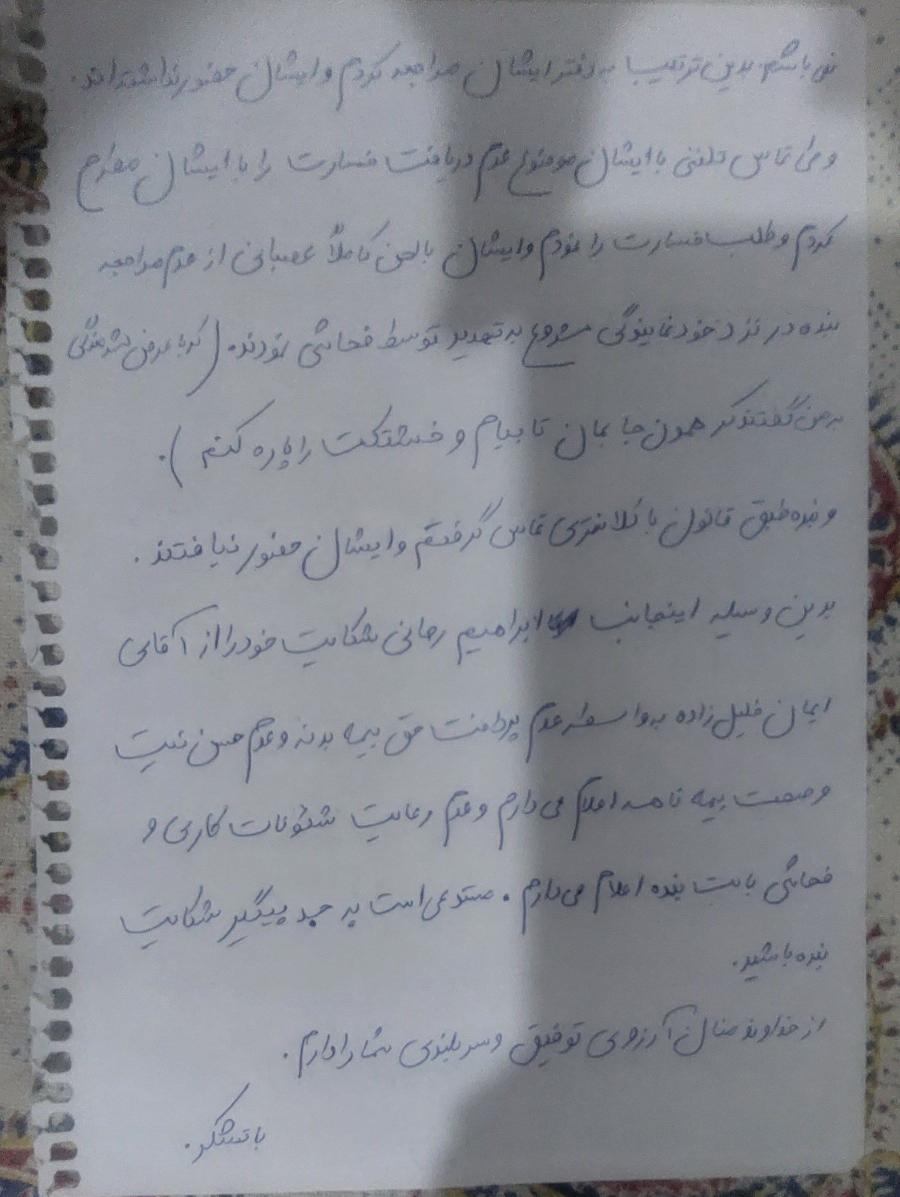 می باشم. بدین ترتیب به دفتر ایشان مراجعه کردم و ایشان حضور نداشته اند.
و طی تماس تلفنی با ایشان موضوع عدم دریافت خسارت را با ایشان مطرح
کردم و طلب خسارت را نمودم و ایشان با لحن کاملاً عصبانی از عدم مراجعه
بنده در نزد خود نمایندگی شروع به تهدید توسط فحاشی نمودند. (که با عرض شرمندگی
به من گفتند که همون جا بمان تا بیام و خشتکت را پاره کنم ).
و بنده طبق قانون با کلانتری تماس گرفتم و ایشان حضور نیافتند.
بدین وسیله اینجانب ابراهیم رحمانی شکایت خود را از آقای
ایمان خلیل زاده به واسطه عدم پرداخت حق بیمه بدنه و عدم حسن نیت
و صحت بیمه نامه اعلام می دارم و عدم رعایت شئونات کاری و
فحاشی بابت بنده اعلام می دارم. مستدعی است به جد پیگیر شکایت
بنده باشید.
از خداوند منان آرزوی توفیق و سربلندی شما را دارم.
با تشکر.